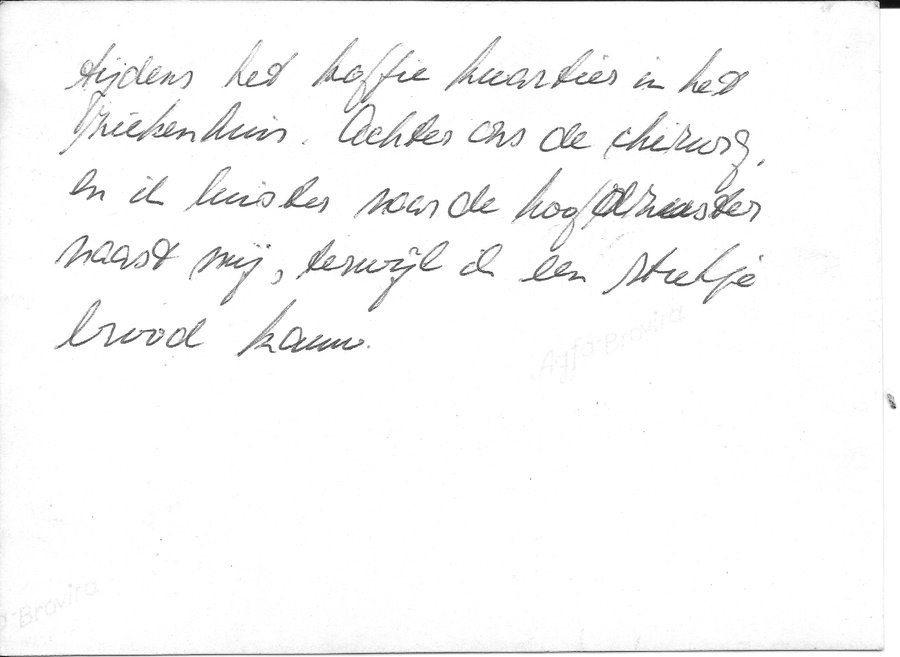 tijdens het koffie kwartier in het
Ziekenhuis. Achter ons de chirurg,
en ik luister naar de hoofdzuster
naast mij, terwijl ik een stukje
brood kauw.
Agfa-Brovira
a-Brovira